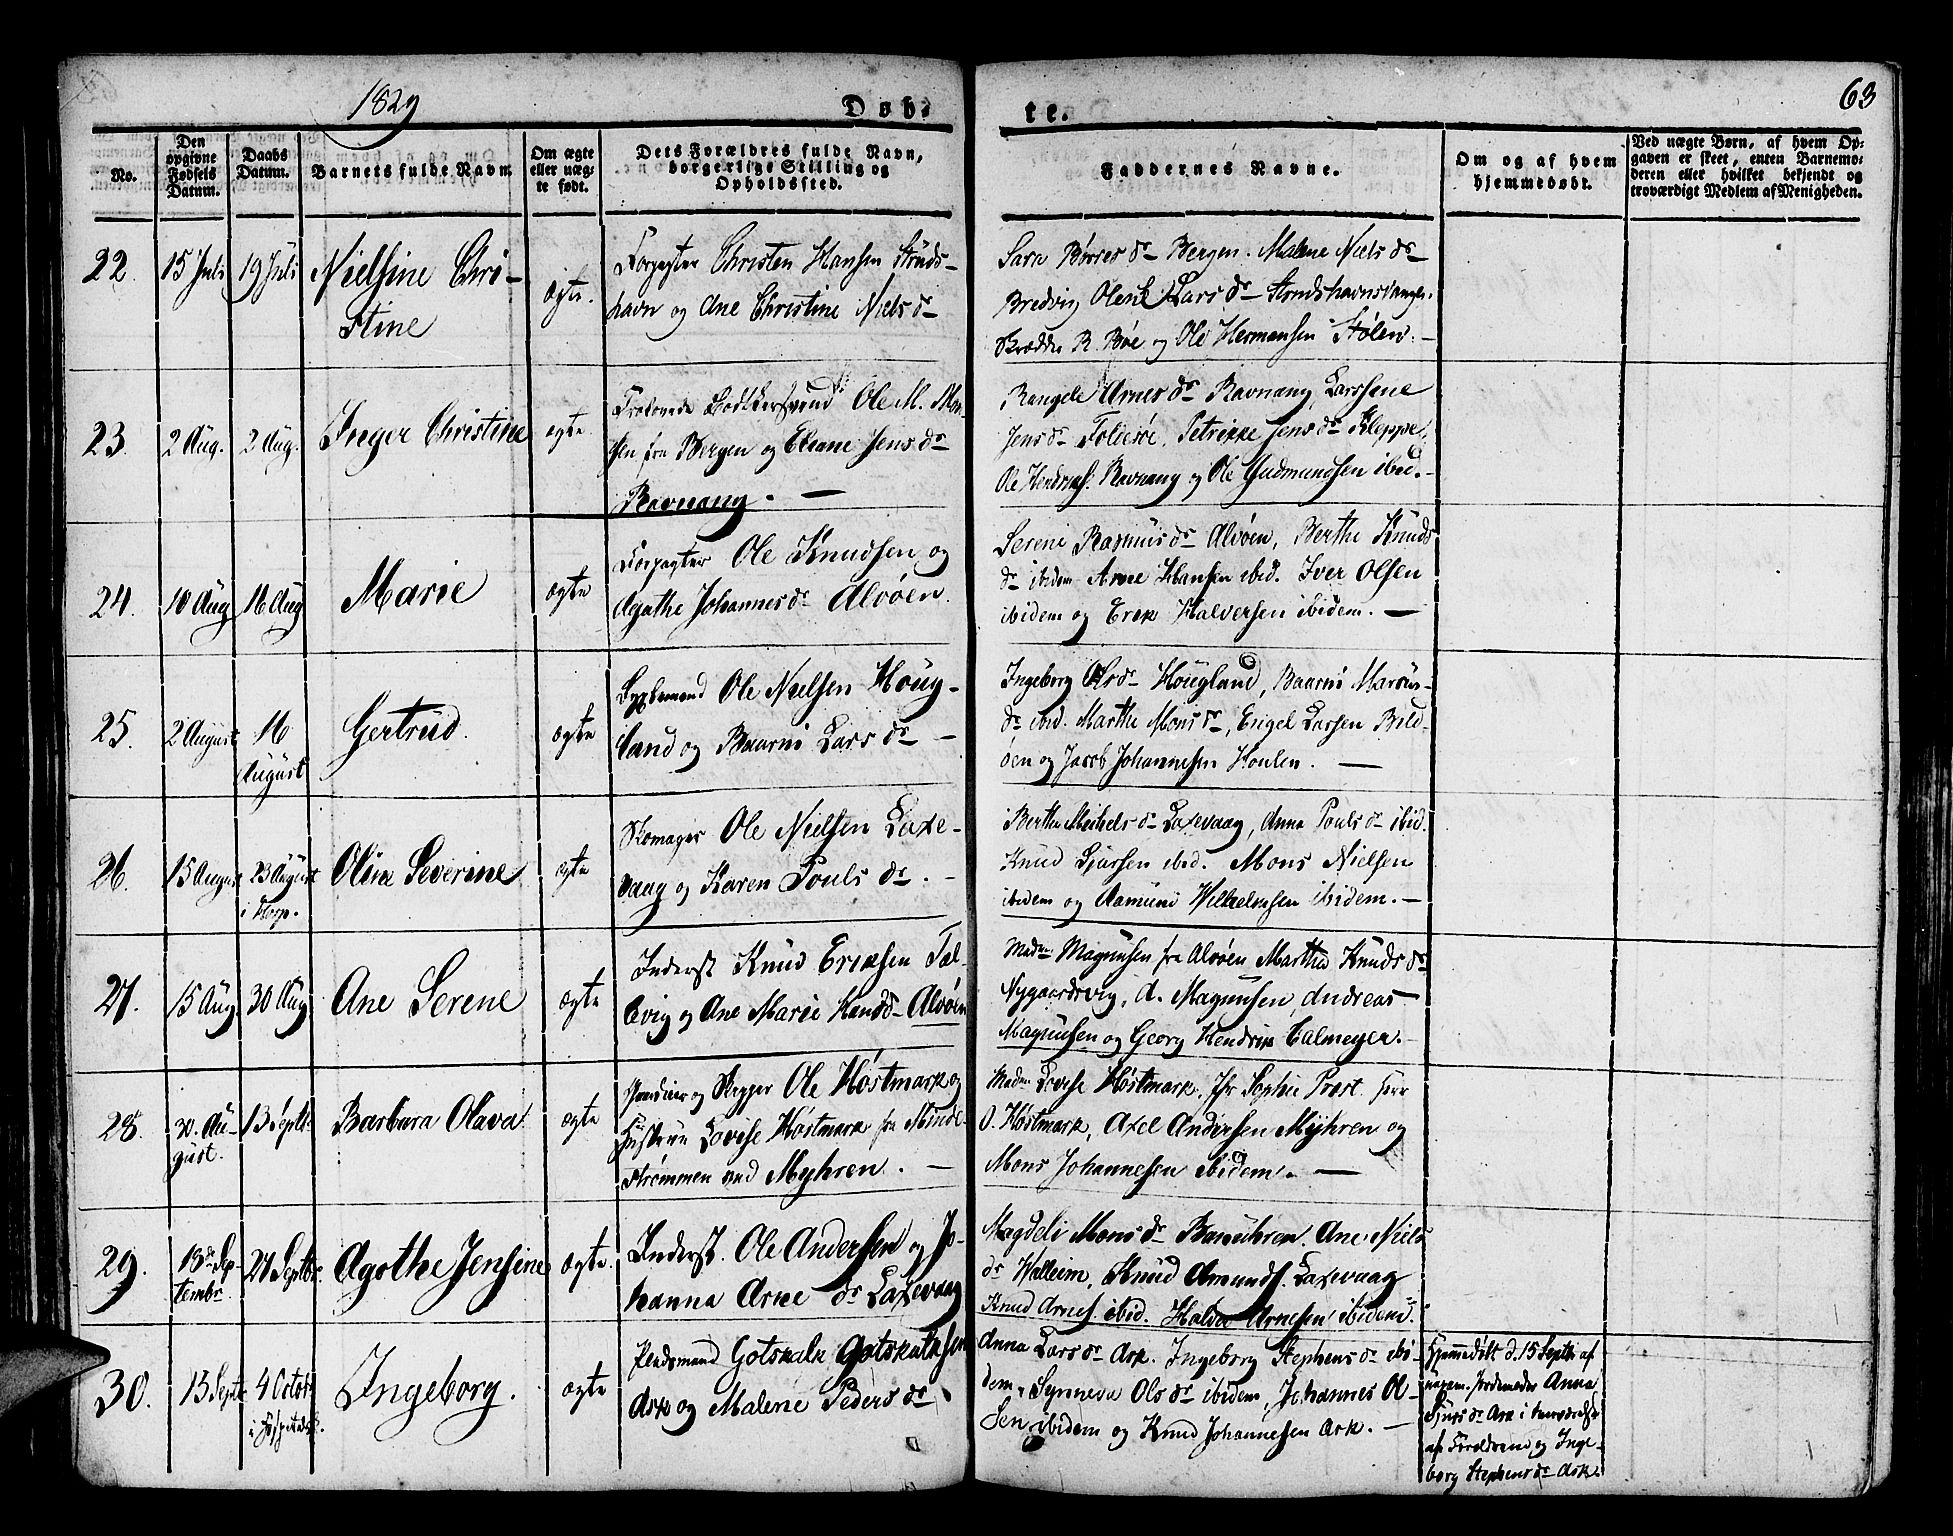 1829
Døb-
te.
63
No.
Den opgivne Fødsels Datum.
Daabs Datum.
Barnets fulde Navn
Om ægte eller uægte født.
Dets Forældres fulde Navn, borgerlige Stilling og Opholdssted.
Faddernes Navne.
Om og af hvem hjemmedøbt.
Ved uægte Børn, af hvem Opgaven er skeet, enten Barnemoderen eller hvilket bekjendt og troværdigt Medlem af Menigheden.
22.
15 Juli
19 Juli
Nielsine Chri-
stine
ægte.
Forpagter Christen Hansen Struds-
havn og Ane Christine Niels dr
Sara Børres dr Bergen. Malene Niels dr
Bredvig Lars dr
Skrædder R. Bøe og Ole Hermansen Stølen.
23.
2 Aug.
2 Aug.
Inger Christine
ægte
Trolovede Ole M. Mon-
sen fra Bergen og Eliane Jens dr
Ravnang.
Rangele Arnes dr Ravnang, Larssene
Jens dr Folderøe, Petrikke Jens dr Kleppe,
Ole Hendriks. Ravnang og Ole Gudmundsen ibid.
24.
10 Aug
16 Aug
Marie
ægte
Forpagter Ole Knudsen og
Agathe Johannes dr Alvøen.
Serene Rasmus dr Alvøen, Berthe Knuds
dr ibidem Arne Hansen ibid. Iver Olsen
ibidem og Erik Halversen ibidem.
25.
2 August
16
August
Gertrud.
ægte
Ole Nielsen Houg-
land og Baarni Lars dr
Ingeborg Ols dr Hougland, Baarni Marcus
dr ibid. Marthe Mons dr, Engel Larsen Bild-
øen og Jacob Johannesen Koulen.
26.
15 August
23 August
i Korp.
Oline Severine
ægte
Skomager Ole Nielsen Laxe-
vaag og Karen Pouls dr.
Berthe Mikkels dr Laxevaag, Anna Pouls dr ibid.
Knud Sjursen ibid. Mons Nielsen
ibidem og Aamund Wilhelmsen ibidem.
27.
15 Aug
30 Aug
Ane Serene
ægte
Inderst Knud Eriksen
og Ane Marie Alvøen
Madm Magnusen fra Alvøen Marthe Knuds dr
Nygaardsvig, A. Magnusen, Andreas
Magnusen og Georg Hendrik Calmeyer.
28.
30. Au-
gust.
13 Septbr
Barbara Olava
ægte
og Skipper Ole Høstmark og
Hustrue Lovise Høstmark fra Minde-
strømmen ved Myhren.
Madm Lovise Høstmark, Jfr Sophie Prost. Herr
O. Høstmark, Axel Andersen Myhren og
Mons Johannesen ibidem.
29.
13de Sep-
tembr
27 Septbr.
Agathe Jensine
ægte.
Inderst. Ole Andersen og Jo-
hanna Arne dr Laxevaag
Magdeli Mons dr Ane Niels
dr Walleim, Knud Amunds. Laxevaag
Knud Arnes. ibid. Haldor Arnesen ibidem.
30.
13 Septr
4 Octobr
i Hospitalet.
Ingeborg.
ægte
Gotskalk Gotskalksen
Ask og Malene Peders dr
Anna Lars dr Ask. Ingeborg Stephens dr ibi-
dem, Synneva Ols dr ibidem, Johannes Ol-
sen ibidem og Knud Johannesen Ask.
Hjemmedøbt d. 15 Septbr af
Jordemoder Anna
Sjurs dr Ask i
af Forældrene og Inge-
borg Stephens dr Ask.